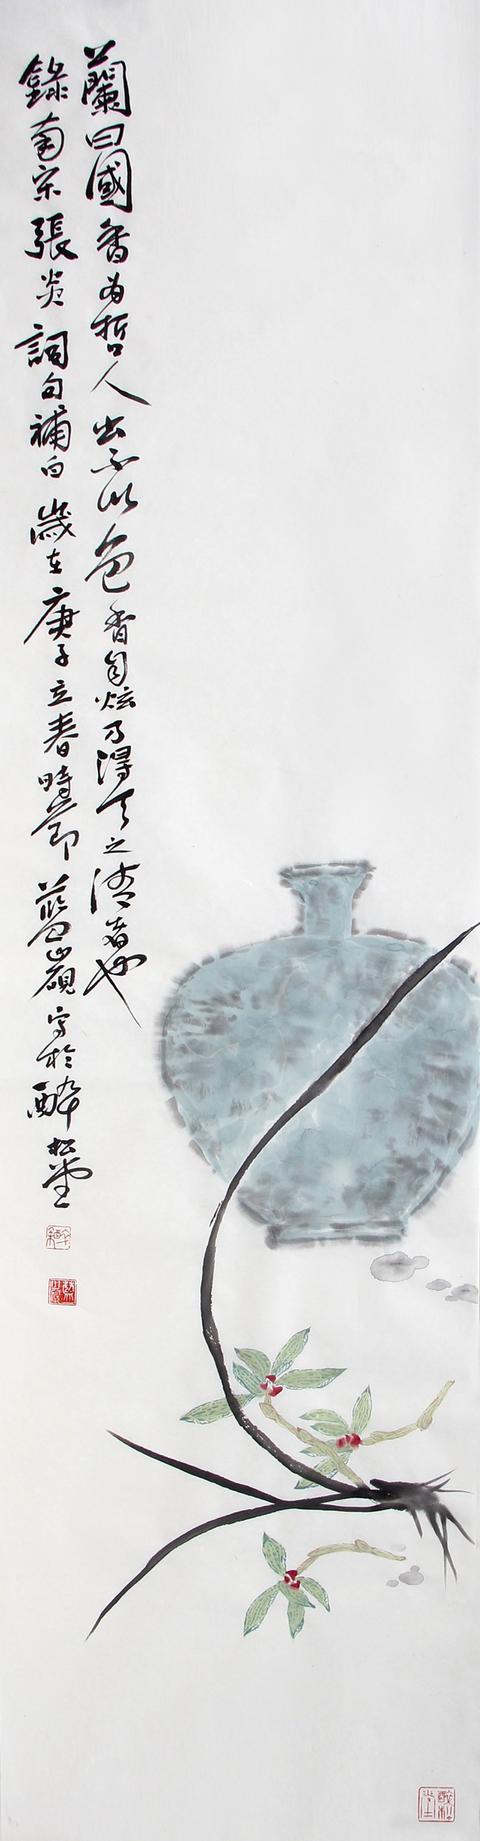 蘭曰國香為哲人出不以色香自炫乃得天之清者也
錄南宋張炎詞句補白歲在庚子立春時節藍巖寫於醉松堂